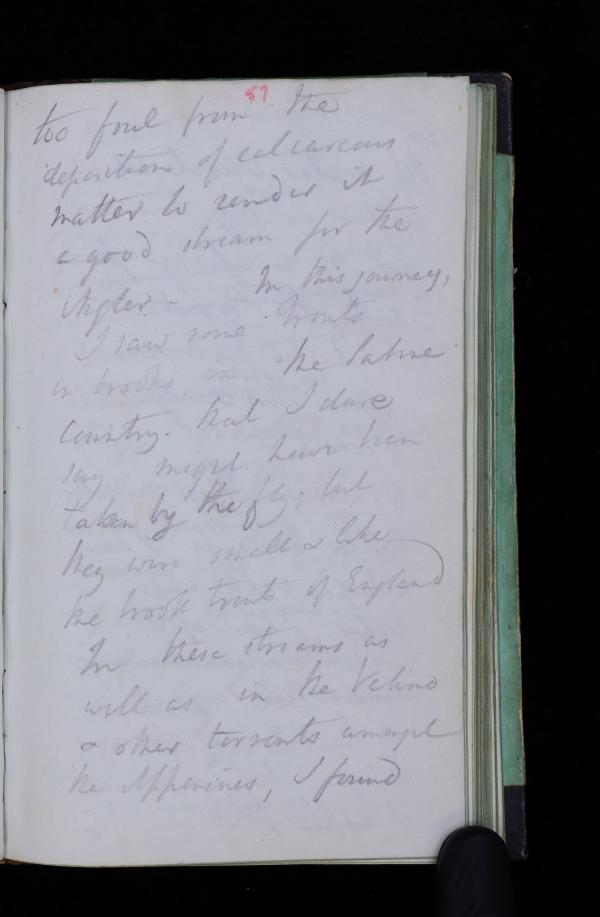 57
too foul from the
deposition of calcareous
matter to render it
a good stream for the
Angler - In this journey,
I saw some trouts
in brooks in the Sabine
Country. that I dare
say might have been
taken by the fly; but
they were small & like
the brook trouts of England
In these streams as
well as in the Velino
& other torrents amongst
the Appenines, I found